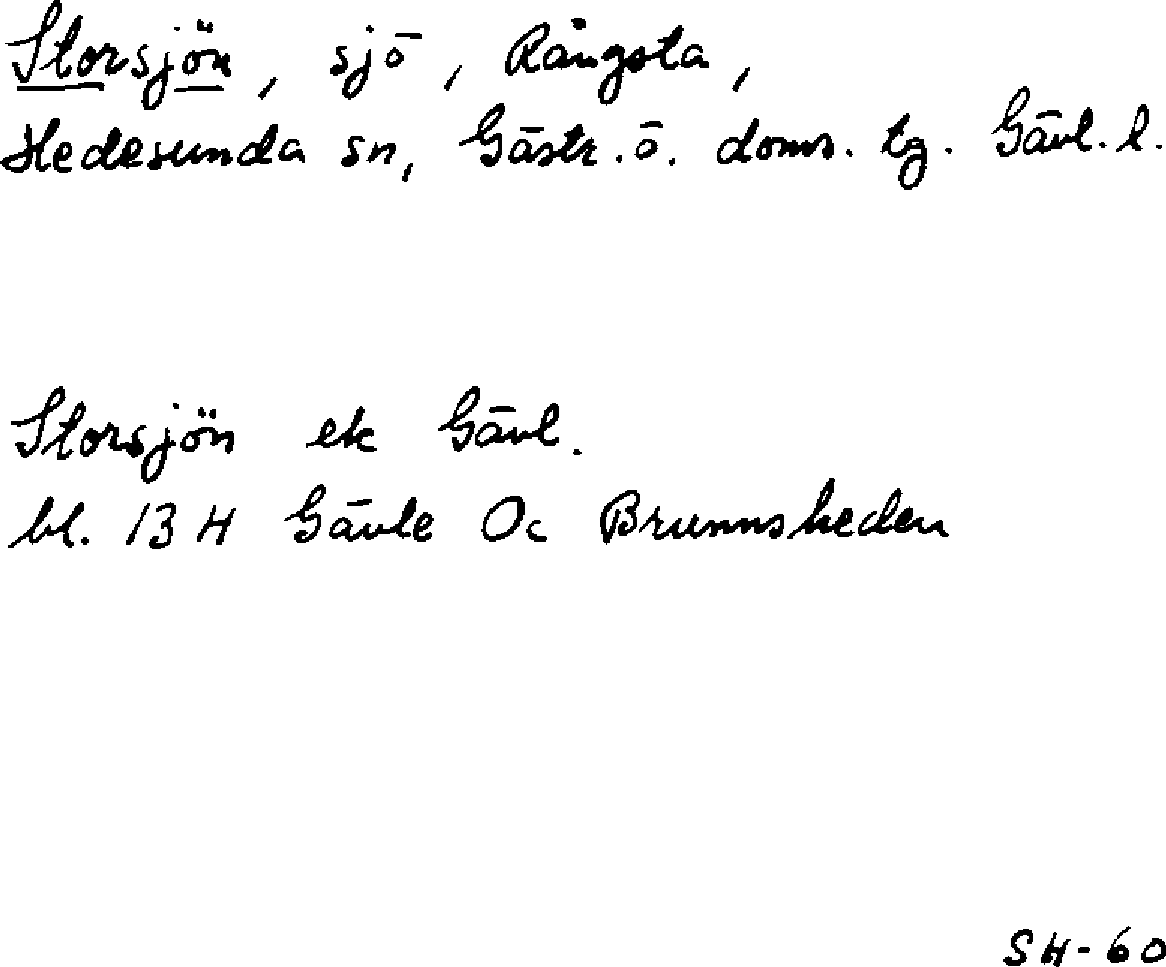 Storsjön, sjö, Rångsta,
Hedesunda sn, Gästr. ö. doms. tg. Gävl. l.
Storsjön ek Gävl.
bl. 13 H Gävle Oc Brunnsheden
SH-60